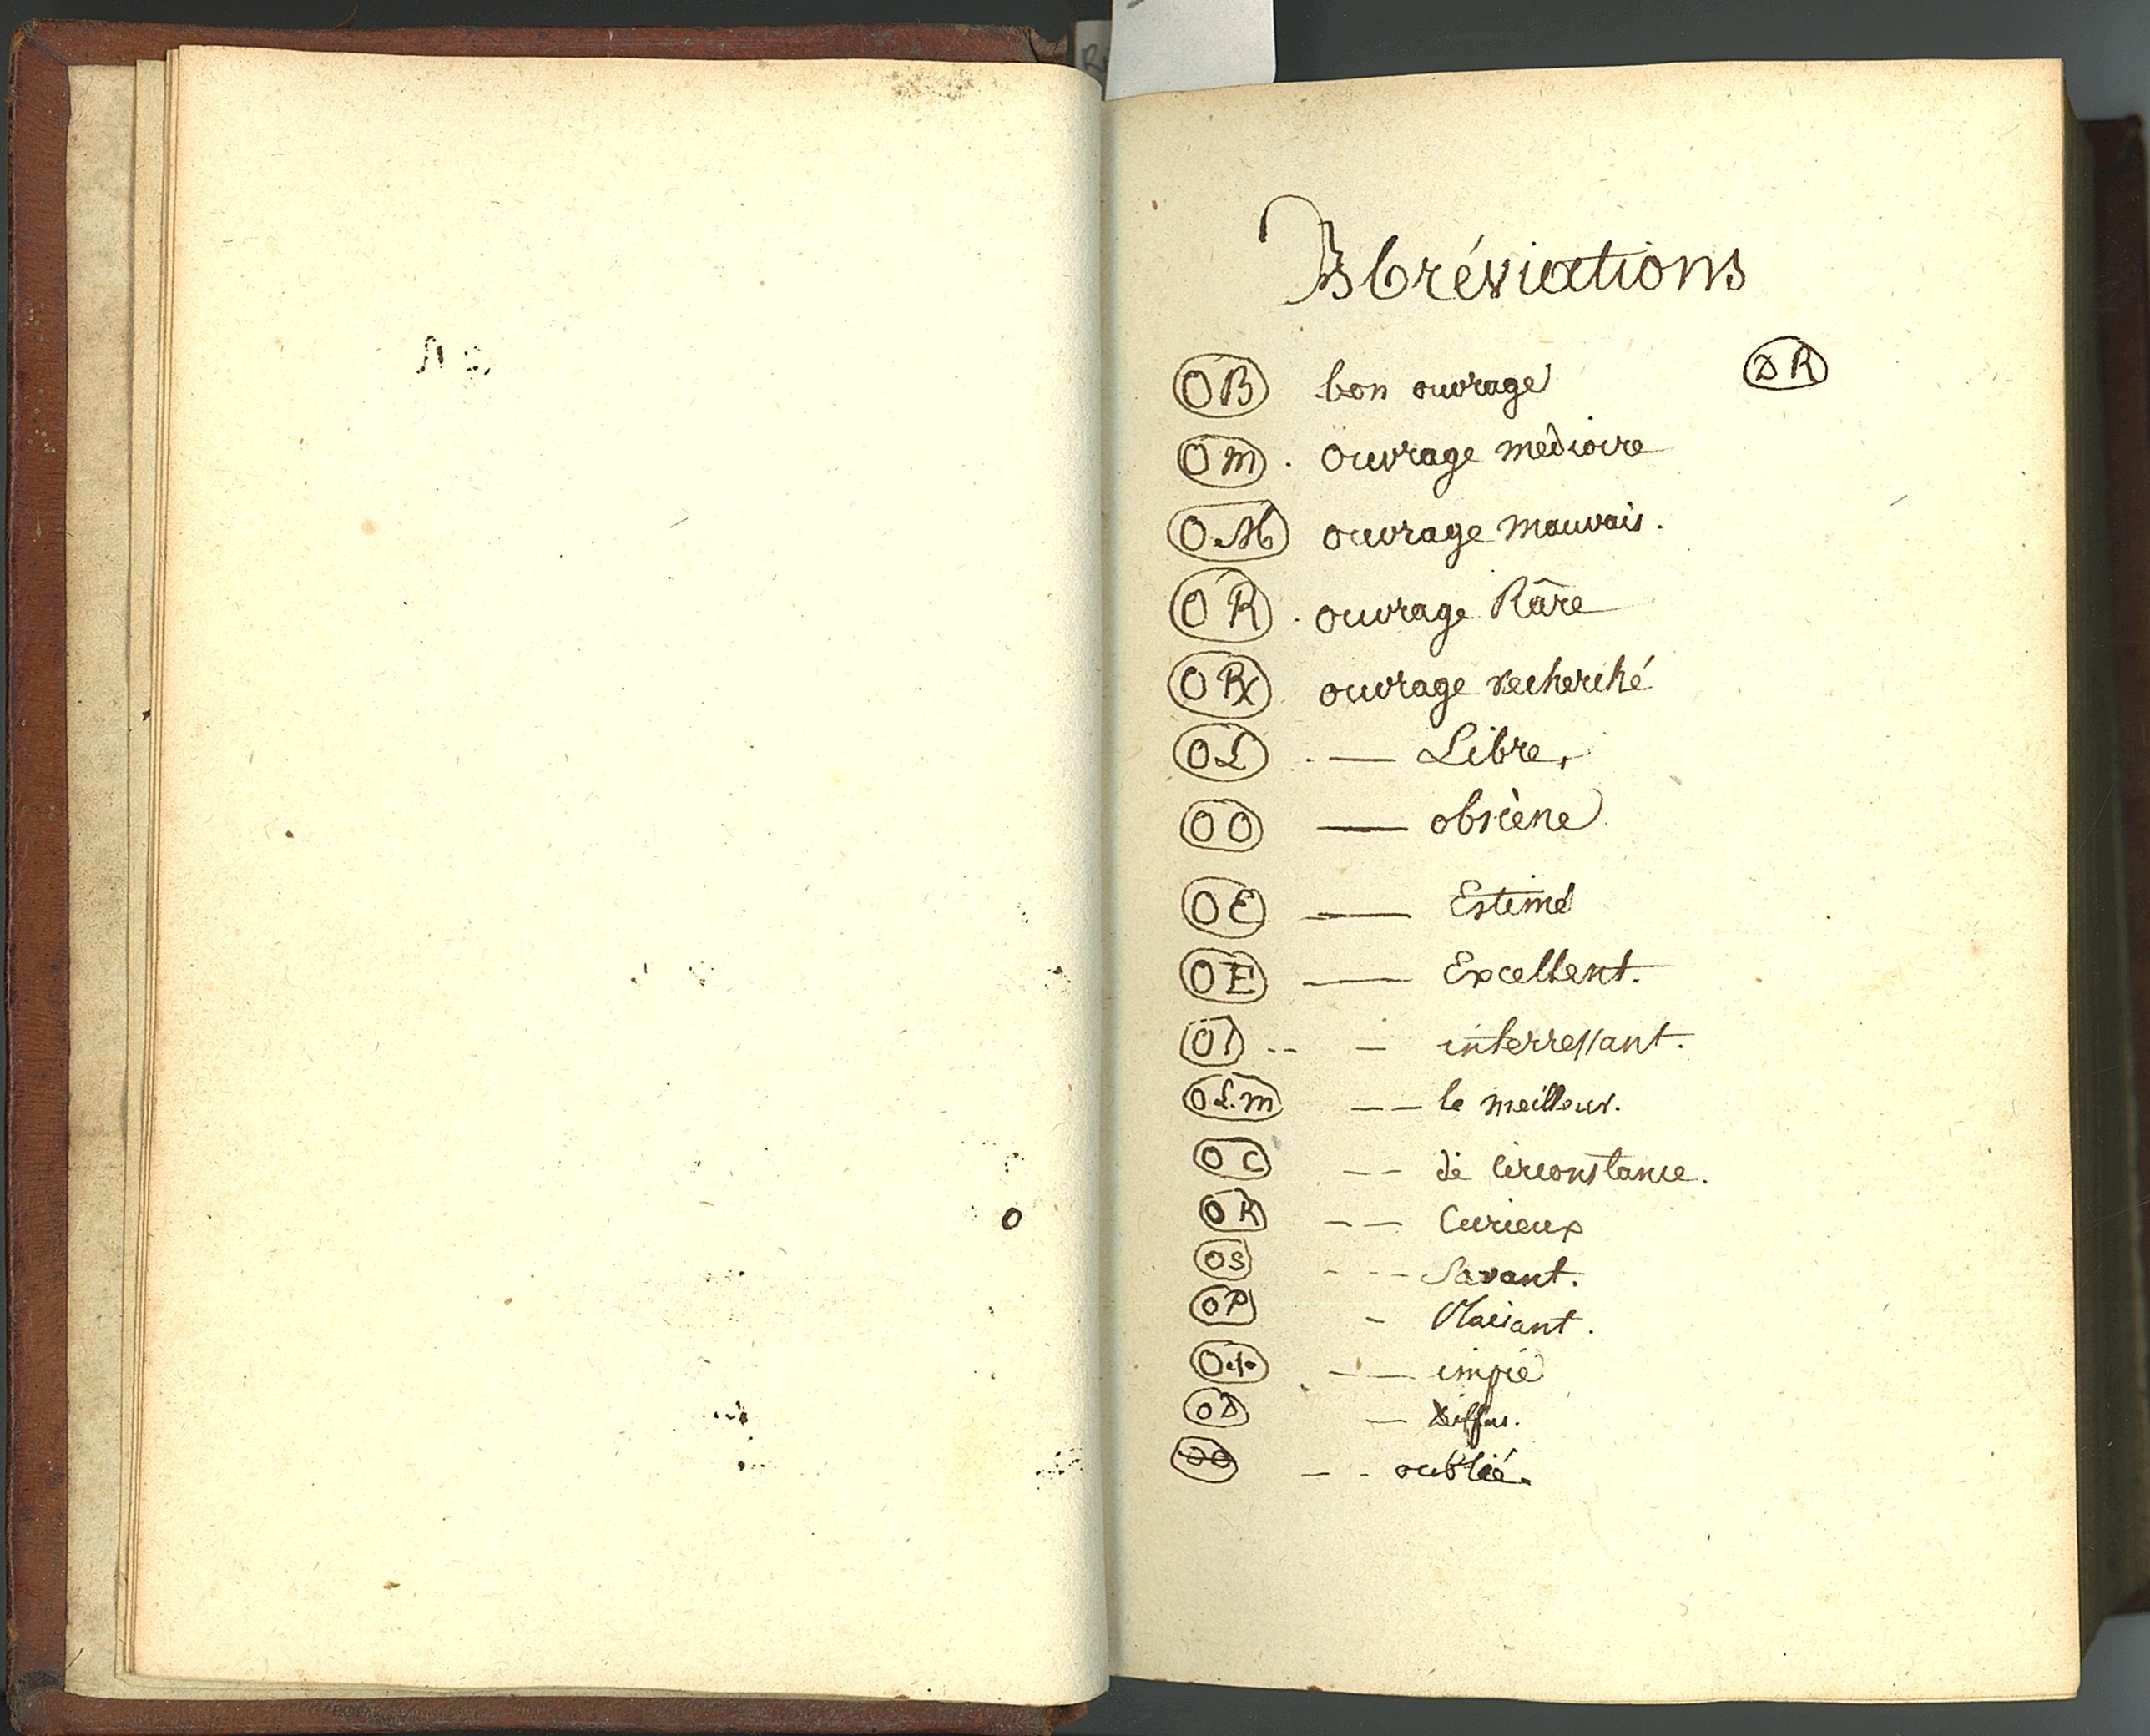 Abréviations
OB bon ouvrage DR
Om. ouvrage médiocre
O.M ouvrage mauvais.
OR. ouvrage Râre
ORx ouvrage recherché
OL .— Libre,
OO — obscène
OE — Estimé
OE — Excellent.
OI -- — interressant.
OL.m —— le meilleur.
OC —— de circonstance.
OK —— Curieux
OS --- Savant.
OP - Plaisant.
O·/· —— impie
OD — Diffus.
OO - - oublié.